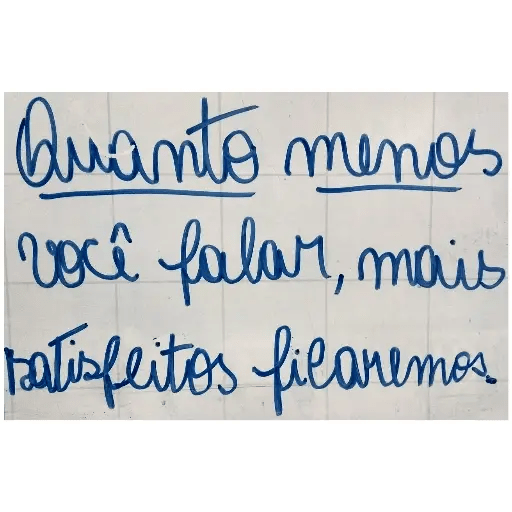 Quanto menos
você falar, mais
satisfeitos ficaremos.